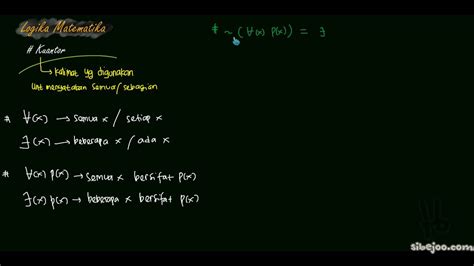 Logika Matematika
# Kuantor
kalimat yg digunakan
Unt menyatakan semua/sebagian
* ∀(x) → semua x / setiap x
∃(x) → beberapa x / ada x
* ∀(x) p(x) → semua x bersifat p(x)
∃(x) p(x) → beberapa x bersifat p(x)
* ~(∀(x) p(x)) = ∃
sibejoo.com